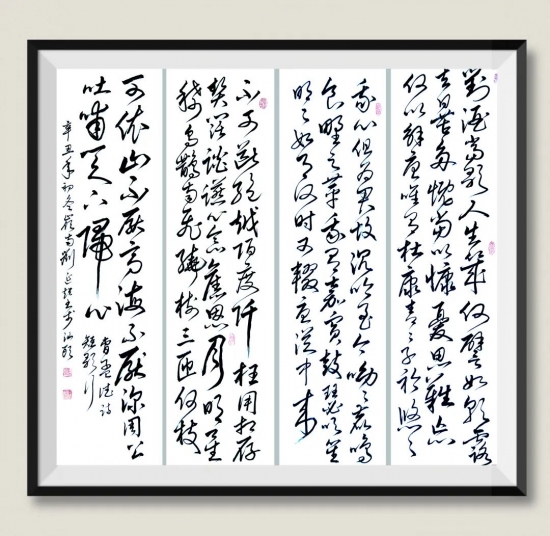 對酒當歌人生幾何譬如朝露
去日苦多慨當以慷憂思難忘
何以解憂唯有杜康青青子衿悠悠
我心但為君故沉吟至今呦呦鹿鳴
食野之苹我有嘉賓鼓瑟吹笙
明明如月何時可輟憂從中來
不可斷絕越陌度阡枉用相存
契闊談讌心念舊恩月明星
稀烏鵲南飛繞樹三匝何枝
可依山不厭高海不厭深周公
吐哺天下歸心
曹孟德詩
短歌行
辛丑年初冬嶺南劉延